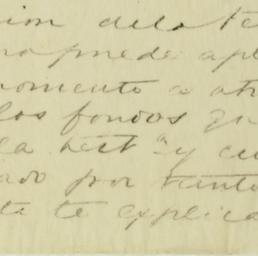 ion dela te
no puede apl
momento a otr
los fondos qu
la test.ª y cu
ado por tanto
te te explica